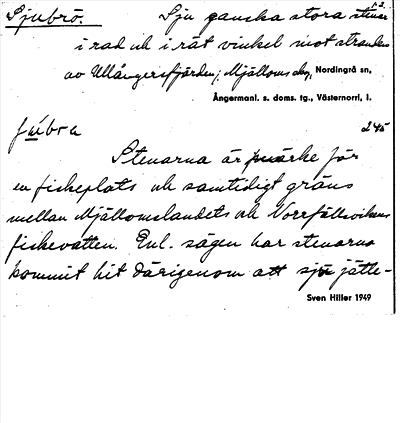 Sjubrö. Sju ganska stora stenar 1.2.
i rad och i rät vinkel mot stranden
av Ullångersfjärden; Mjälloms by, Nordingrå sn,
Ångermanl. s. doms. tg., Västernorrl. l.
245
Stenarna är märke för
en fiskeplats och samtidigt gräns
mellan Mjällomslandets och Norrfällsvikens
fiskevatten. Enl. sägen har stenarna
kommit hit därigenom att sju jätte-
Sven Hiller 1949